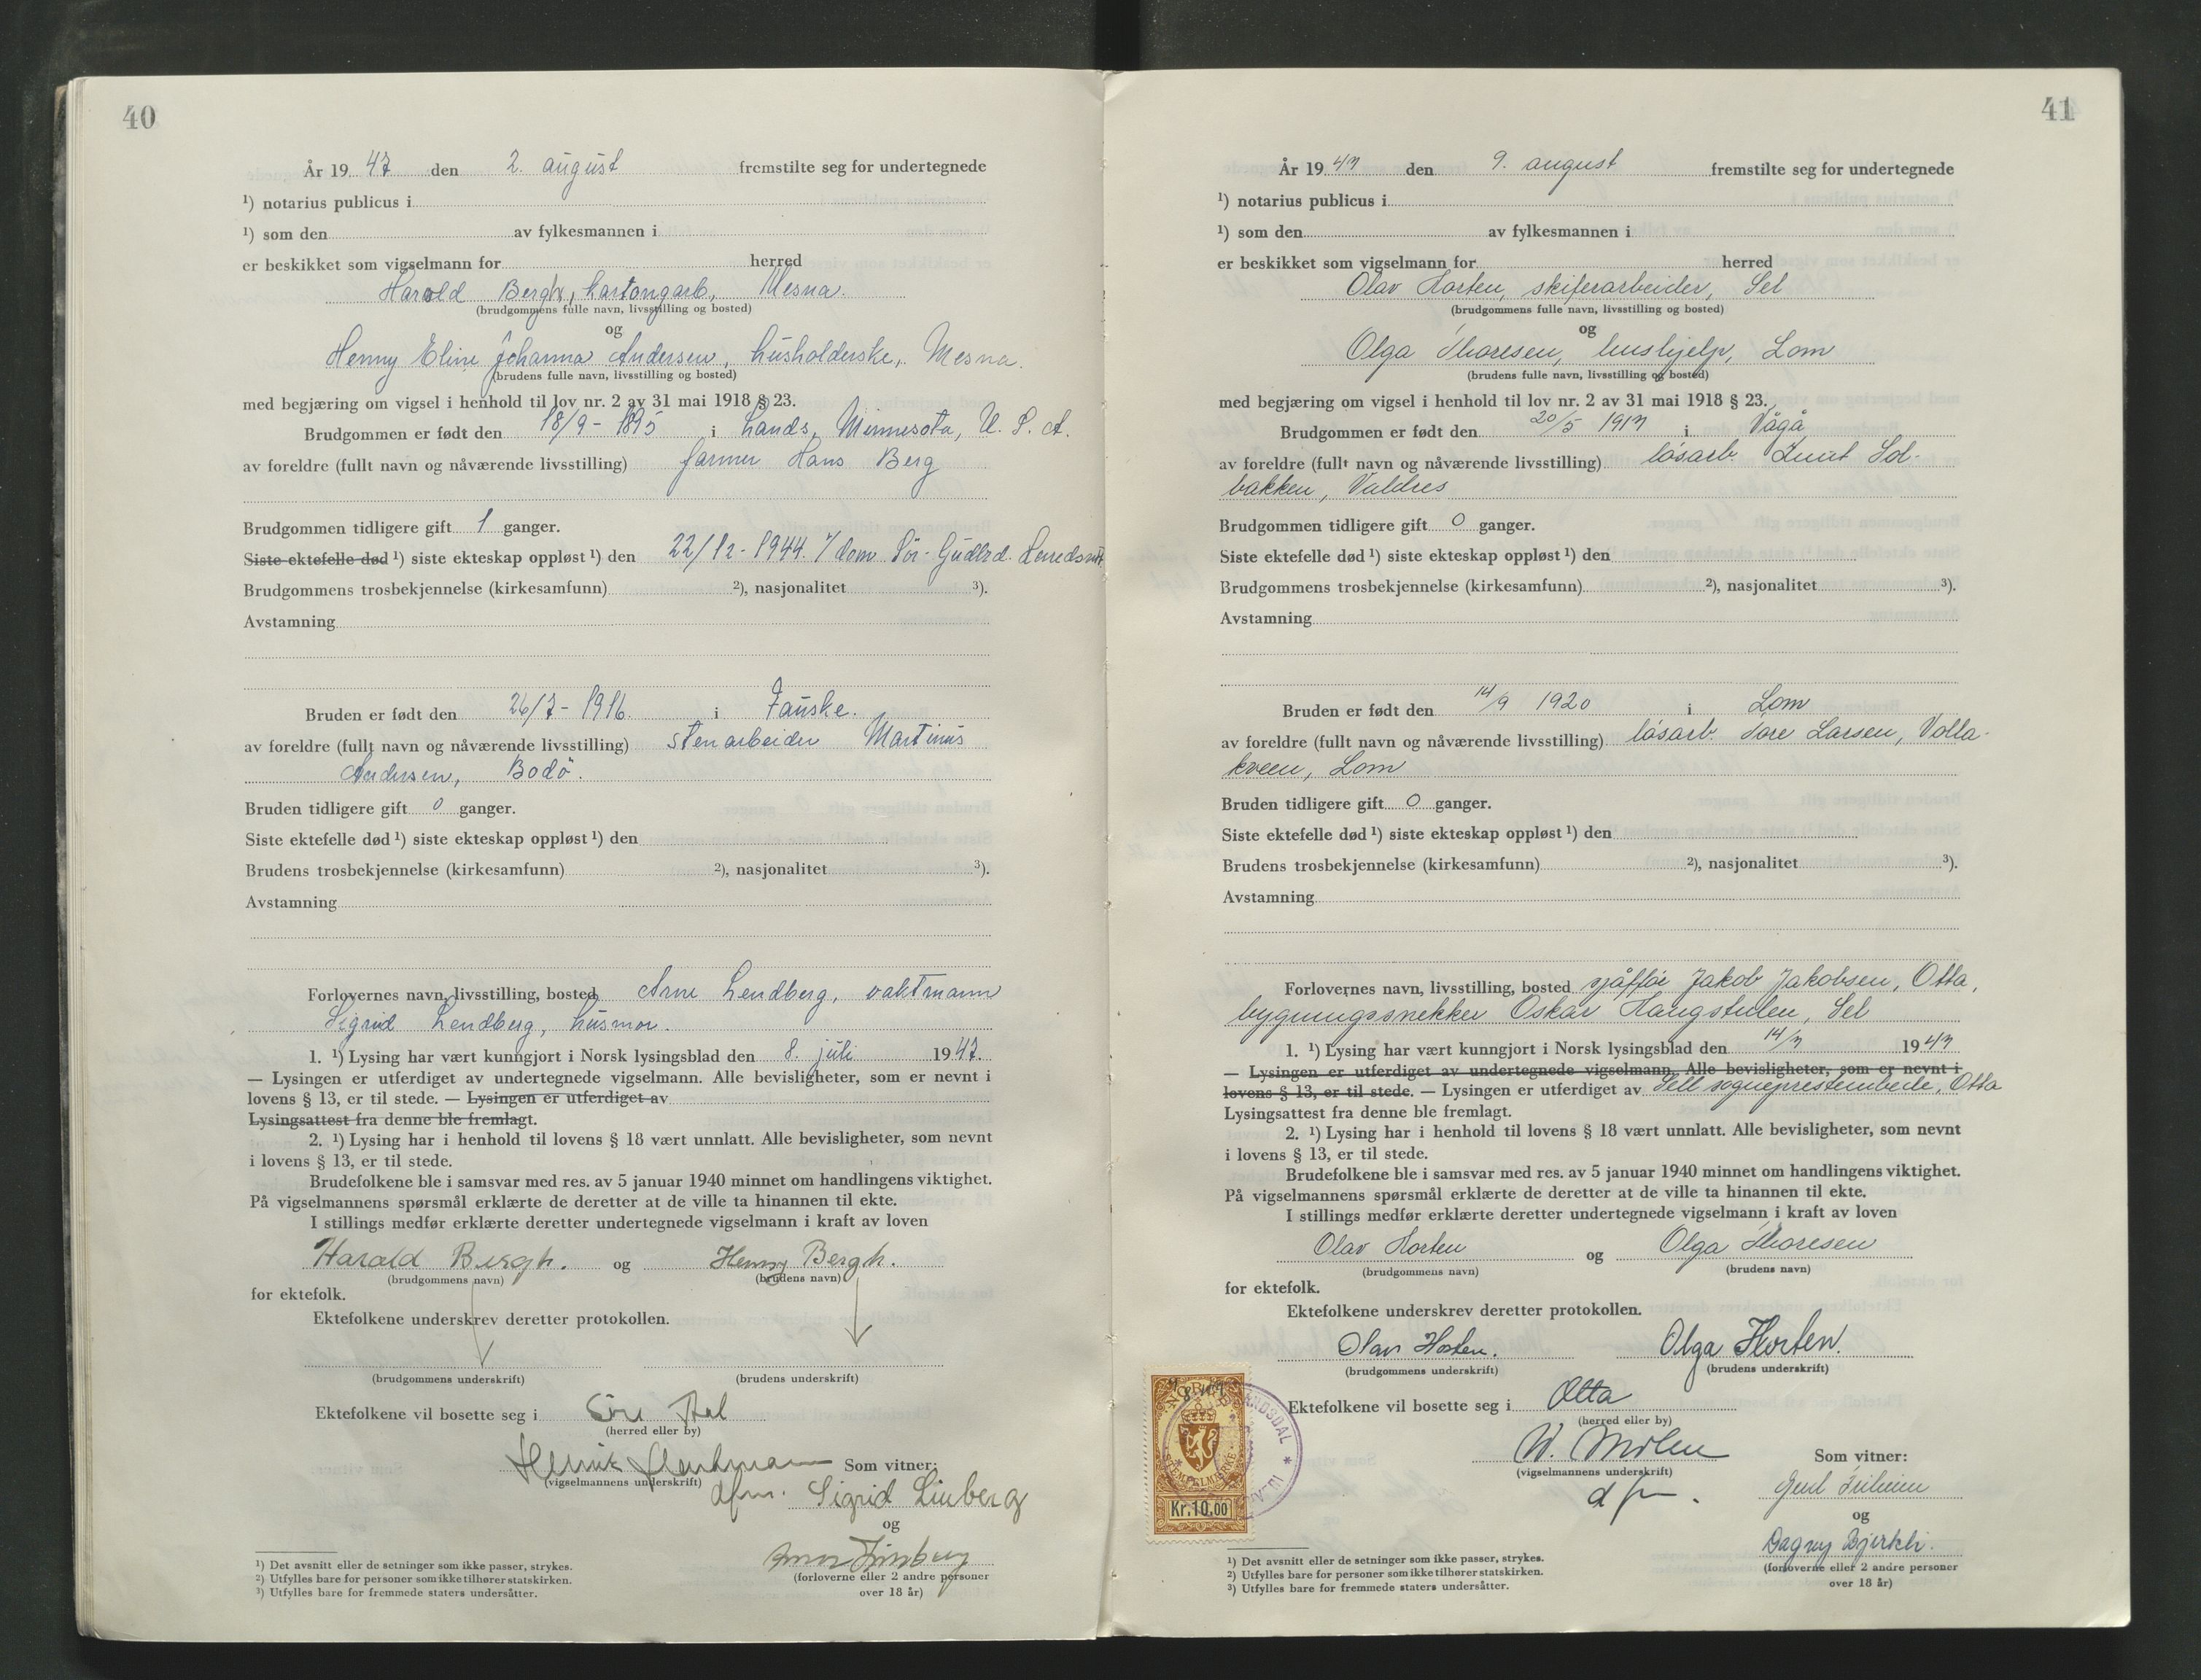 40
År 19 47 den 2. august fremstilte seg for undertegnede
¹) notarius publicus i
¹) som den av fylkesmannen i
er beskikket som vigselmann for herred
Harald Bergh, kartongarb, Mesna.
(brudgommens fulle navn, livsstilling og bosted)
og
Henny Eline Johanna Andersen, husholderske, Mesna.
(brudens fulle navn, livsstilling og bosted)
med begjæring om vigsel i henhold til lov nr. 2 av 31 mai 1918 § 23.
Brudgommen er født den 18/9 - 1895 i Lands, Minnesota, U. S. A.
av foreldre (fullt navn og nåværende livsstilling) farmer Hans Berg
Brudgommen tidligere gift 1 ganger.
Siste ektefelle død ¹) siste ekteskap oppløst ¹) den 22/12 - 1944. v/dom Sör-Gudbrd. Herredsrett
Brudgommens trosbekjennelse (kirkesamfunn) ²), nasjonalitet ³).
Avstamning
Bruden er født den 26/7 - 1916. i Fauske.
av foreldre (fullt navn og nåværende livsstilling) stenarbeider Martinus
Andersen, Bodö.
Bruden tidligere gift 0 ganger.
Siste ektefelle død ¹) siste ekteskap oppløst ¹) den
Brudens trosbekjennelse (kirkesamfunn) ²), nasjonalitet ³).
Avstamning
Forlovernes navn, livsstilling, bosted Arne Lendberg, vaktmann
Sigrid Lendberg, husmor.
1. ¹) Lysing har vært kunngjort i Norsk lysingsblad den 8. juli 1947.
— Lysingen er utferdiget av undertegnede vigselmann. Alle bevisligheter, som er nevnt i
lovens § 13, er til stede. — Lysingen er utferdiget av
Lysingsattest fra denne ble fremlagt.
2. ¹) Lysing har i henhold til lovens § 18 vært unnlatt. Alle bevisligheter, som nevnt
i lovens § 13, er til stede.
Brudefolkene ble i samsvar med res. av 5 januar 1940 minnet om handlingens viktighet.
På vigselmannens spørsmål erklærte de deretter at de ville ta hinannen til ekte.
I stillings medfør erklærte deretter undertegnede vigselmann i kraft av loven
Harald Bergh. og Henny Bergh.
(brudgommens navn) (brudens navn)
for ektefolk.
Ektefolkene underskrev deretter protokollen.
(brudgommens underskrift) (brudens underskrift)
Ektefolkene vil bosette seg i
(herred eller by)
Som vitner:
(vigselmannens underskrift)
dfm. Sigrid Linberg
og
(forloverne eller 2 andre personer
over 18 år)
¹) Det avsnitt eller de setninger som ikke passer, strykes.
²) Utfylles bare for personer som ikke tilhører statskirken.
³) Utfylles bare for fremmede staters undersåtter.
41
År 19 47 den 9. august fremstilte seg for undertegnede
¹) notarius publicus i
¹) som den av fylkesmannen i
er beskikket som vigselmann for herred
Olav Horten, skiferarbeider, Sel
(brudgommens fulle navn, livsstilling og bosted)
og
Olga Thoresen, hushjelp, Lom
(brudens fulle navn, livsstilling og bosted)
med begjæring om vigsel i henhold til lov nr. 2 av 31 mai 1918 § 23.
Brudgommen er født den 20/5 1917 i Vågå
av foreldre (fullt navn og nåværende livsstilling) løsarb. Knut Sol-
bakken, Valdres
Brudgommen tidligere gift 0 ganger.
Siste ektefelle død ¹) siste ekteskap oppløst ¹) den
Brudgommens trosbekjennelse (kirkesamfunn) ²), nasjonalitet ³).
Avstamning
Bruden er født den 14/9 1920 i Lom
av foreldre (fullt navn og nåværende livsstilling) løsarb. Tore Larsen, Volla-
kveen, Lom
Bruden tidligere gift 0 ganger.
Siste ektefelle død ¹) siste ekteskap oppløst ¹) den
Brudens trosbekjennelse (kirkesamfunn) ²), nasjonalitet ³).
Avstamning
Forlovernes navn, livsstilling, bosted sjåffør Jakob Jakobsen, Otta,
bygningssnekker Oskar Haugstulen, Sel
1. ¹) Lysing har vært kunngjort i Norsk lysingsblad den 14/7 1947
— Lysingen er utferdiget av undertegnede vigselmann. Alle bevisligheter, som er nevnt i
lovens § 13, er til stede. — Lysingen er utferdiget av Sell sogneprestembede, Otta
Lysingsattest fra denne ble fremlagt.
2. ¹) Lysing har i henhold til lovens § 18 vært unnlatt. Alle bevisligheter, som nevnt
i lovens § 13, er til stede.
Brudefolkene ble i samsvar med res. av 5 januar 1940 minnet om handlingens viktighet.
På vigselmannens spørsmål erklærte de deretter at de ville ta hinannen til ekte.
I stillings medfør erklærte deretter undertegnede vigselmann i kraft av loven
Olav Horten og Olga Thoresen
(brudgommens navn) (brudens navn)
for ektefolk.
Ektefolkene underskrev deretter protokollen.
Olav Horten. Olga Horten.
(brudgommens underskrift) (brudens underskrift)
Ektefolkene vil bosette seg i Otta
(herred eller by)
W. Mølen Som vitner:
(vigselmannens underskrift)
dfm.
og
Dagny Bjerkli.
(forloverne eller 2 andre personer
over 18 år)
NORGE
STEMPELMERKE
Kr.10.00
¹) Det avsnitt eller de setninger som ikke passer, strykes.
²) Utfylles bare for personer som ikke tilhører statskirken.
³) Utfylles bare for fremmede staters undersåtter.